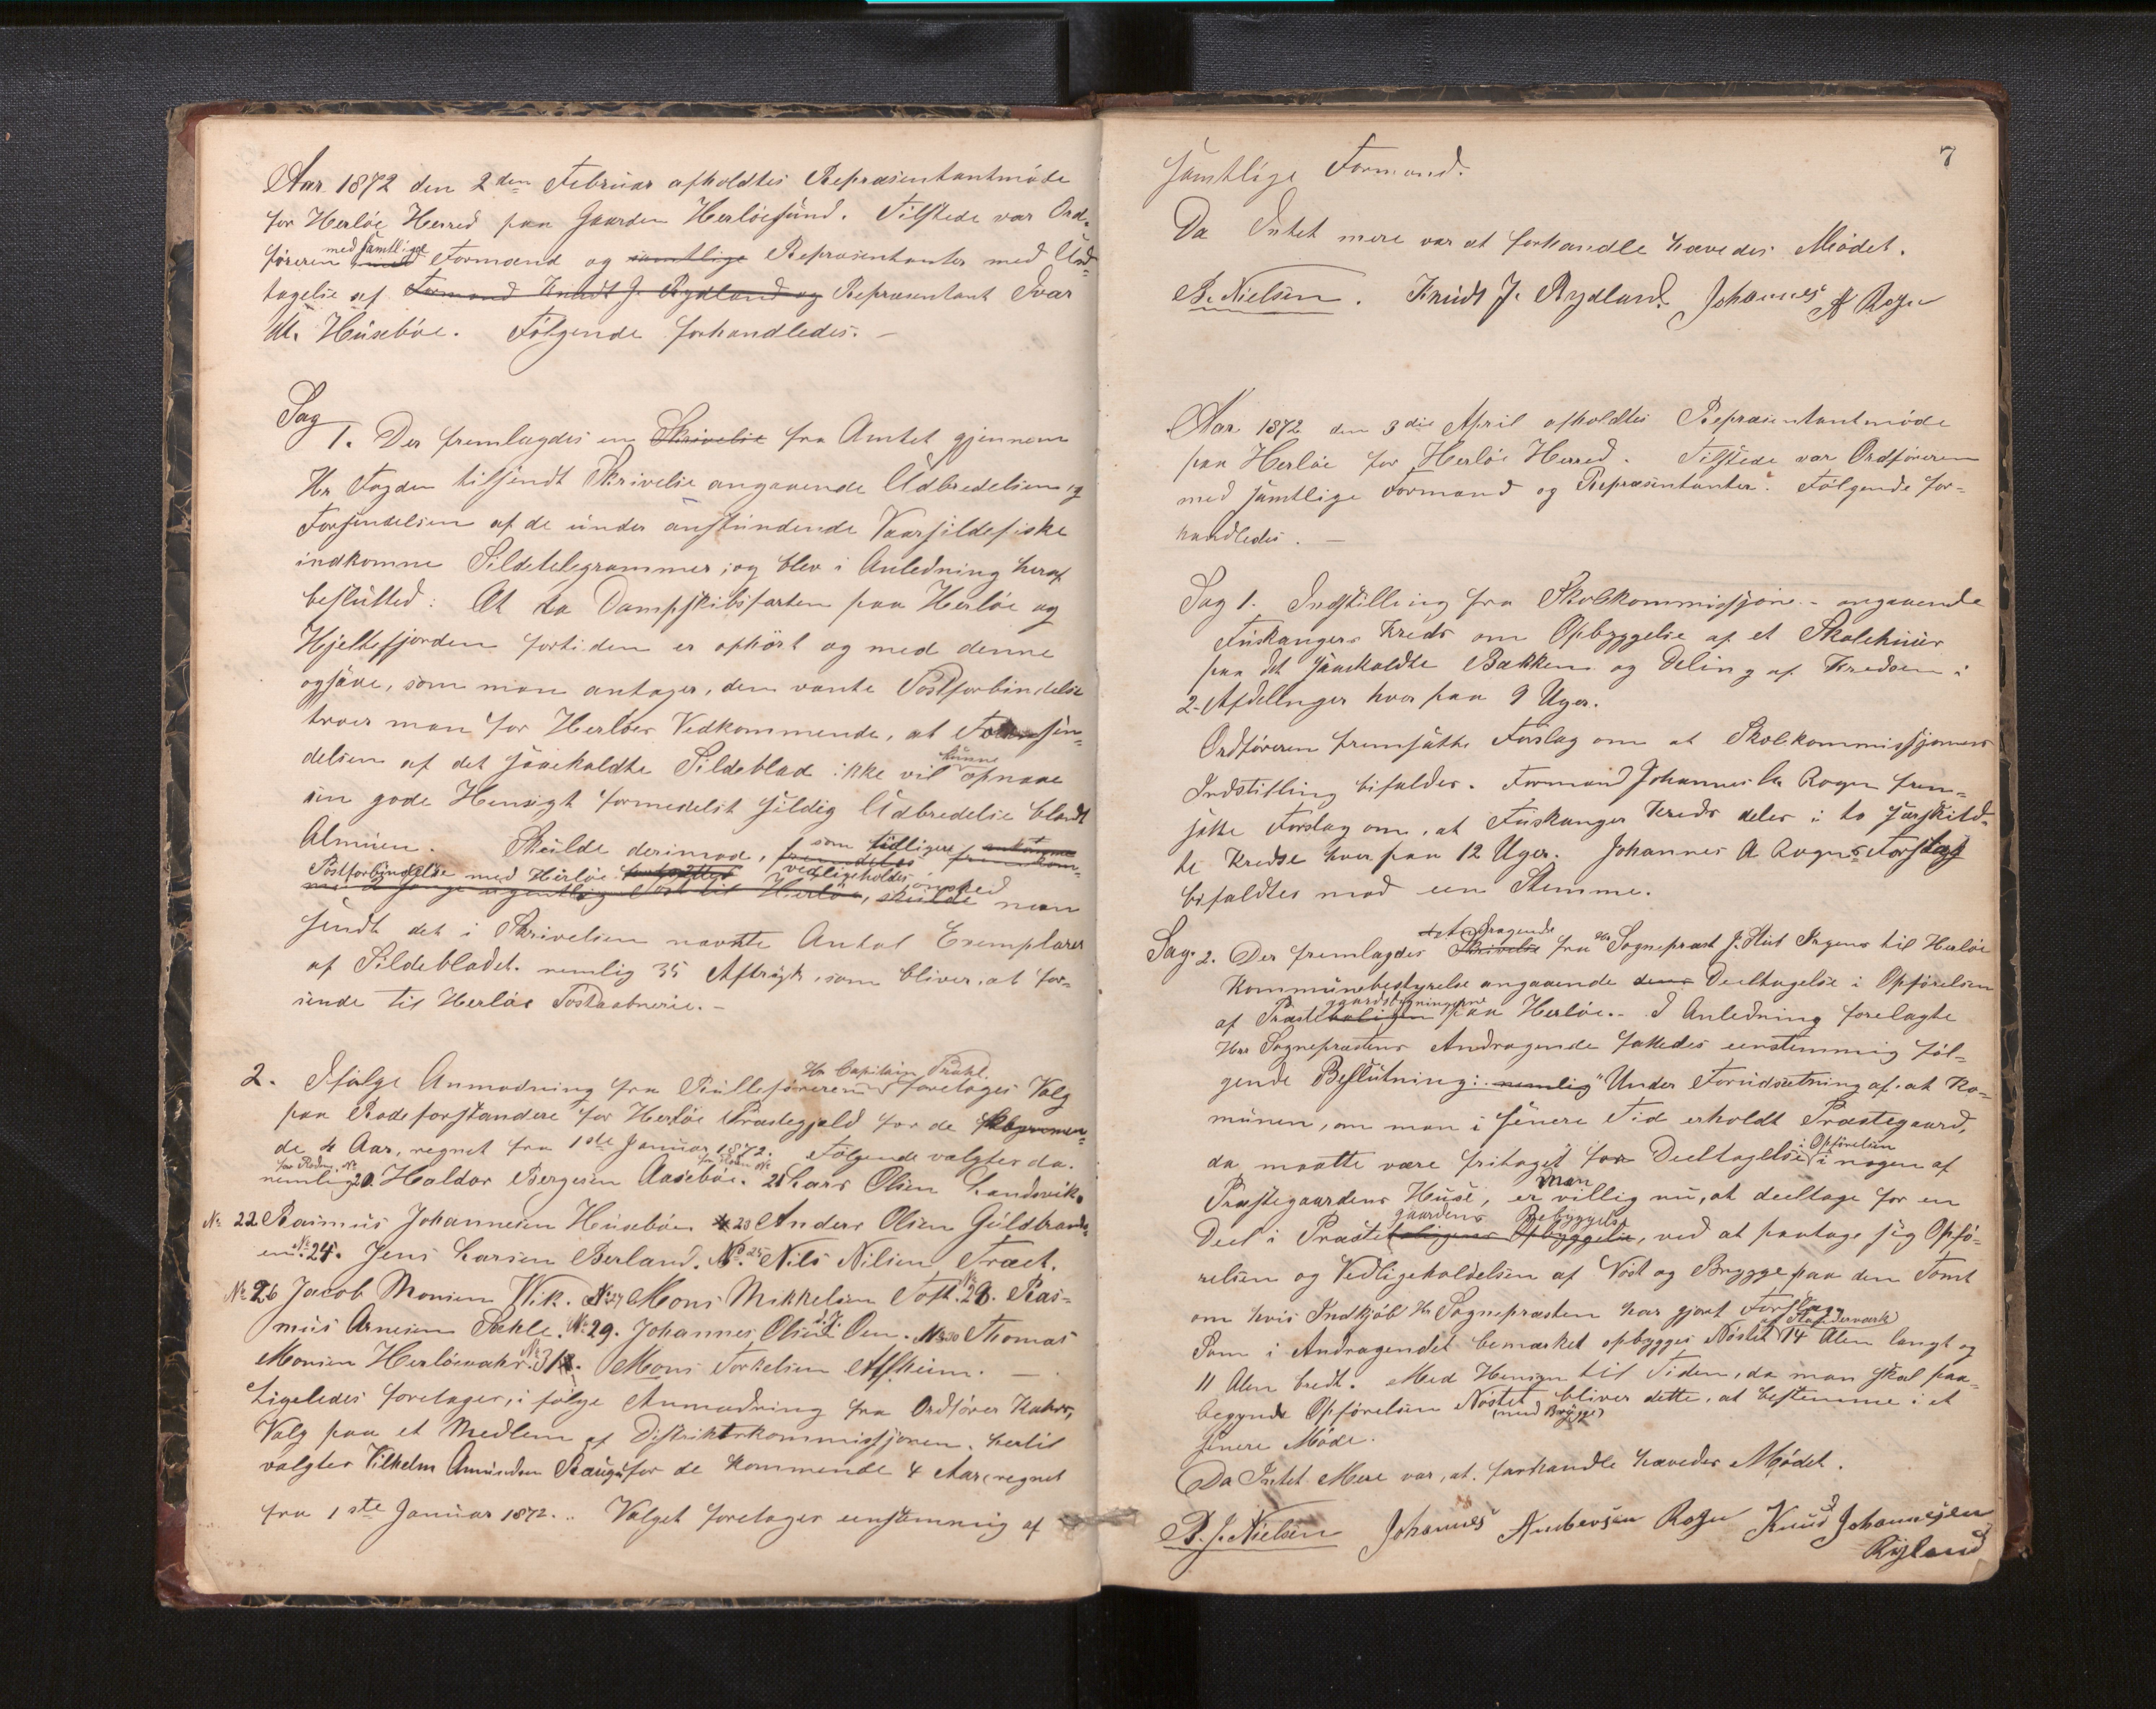 Aar 1872 den 2den Februar afholdtes Repræsentantmöde
for Herlöe Herred paa Gaarden Herlöesund. Tilstede var Ord-
föreren med samtlige Formænd og samtlige Repræsentanter med Und-
tagelse af Formand Knudt J. Rydland og Repræsentant Ivar
M. Huseböe. Fölgende forhandledes. –
Sag
1. Der fremlagdes en Skrivelse fra Amtet gjennem
Hr Fogden tilsendt Skrivelse angaaende Udbredelsen og
Forsendelsen af de under anstundende Vaarsildefiske
indkomne Sildetelegrammer, og blev i Anledning heraf
beslutted: At da Dampskibsfarten paa Herlöe og
Hjeltefjorden fortiden er ophört og med denne
ogsaa, som man antager, den vante Postforbindelse
troer man for Herlöes Vedkommende, at Forsen-
delsen af det saakaldte Sildeblad ikke vil kunne opnaae
sin gode Hensigt formedelst sildig Udbredelse blandt
Almuen. Skulde derimod, som tidligere
Postforbindelse med Herlöe vedligeholdes
med Gange ugentlig Post til Herlöe, skulde ønsked man
sendt det i Skrivelsen nævnte Antal Exemplarer
af Sildebladet. nemlig 35 Aftryk, som bliver, at for-
sende til Herlöe Postaabnerie. –
2. Ifölge Anmodning fra Rulleföreren Hr Capitain Prahl foretoges Valg
paa Rodeforstandere for Herlöe Præstegjeld for de kommen-
de 4 Aar, regnet fra 1ste Januar 1872. Fölgende valgtes da.
nemlig for Roden No 20. Haldor Bergesen Aaseböe. for Roden No 21 Lars Olsen Landsvik.
No 22 Rasmus Johannesen Huseböe 23 Anders Olsen Guldbrands-
en. No 24. Jens Larsen Berland. No. 25 Nils Nilsen Træet.
No 26 Jacob Monsen Wik. No 27 Mons Mikkelsen Toft. No 28. Ras-
mus Arnesen Sæhle. No 29. Johannes Olsen Oen. No 30 Thomas
Monsen Herlöevahr. No 31. Mons Torkelsen Alfheim. –
Ligeledes foretages, i fölge Anmodning fra Ordförer Kahrs,
Valg paa et Medlem af Distriktskommissjonen. hertil
valgtes Vilhelm Amundsen for de kommende 4 Aar, regnet
fra 1ste Januar 1872. Valget foretages eenstemmig af
7
samtlige Formænd.
Da Intet mere var at forhandle hævedes Mödet.
B. Nielsen. Knudt J. Rydland. Johannes A Rogn
Aar 1872 den 3die April afholdtes Repræsentantmöde
paa Herlöe for Herlöe Herred. Tilstede var Ordföreren
med samtlige Formænd og Repræsentanter. Fölgende for-
handledes. –
Sag 1. Indstilling fra Skolekommissjone – angaaende
Fuskangers Kreds om Opbyggelse af et Skolehuus
paa det saakaldte Bakken og Deling af Kredsen i
2 Afdelinger hver paa 9 Uger.
Ordföreren fremsatte Forslag om at Skolekommissjonens
Indstilling bifaldes. Formand Johannes A. Rogn frem-
satte Forslag om, at Fuskanger Kreds deles i to særskild-
te Kredse hver paa 12 Uger. Johannes A Rogns Forslag
bifaldtes mod een Stemme.
Sag 2. Der fremlagdes Skrivelse et Andragende fra Hr Sognepræst J. Stub Irgens til Herlöe
Kommunebestyrelse angaaende dens Deeltagelse i Opförelsen
af Præsteboligen gaardsbygningerne paa Herlöe. – I Anledning forelagte
Herr Sognepræstens Andragende fattedes eenstemmig föl-
gende Beslutning: nemlig "Under Forudsætning af, at Ko-
munen, om man i senere Tid erholdt Præstegaard,
da maatte være fritaget for Deeltagelse i Opförelsen i nogen af
Præstegaardens Huse, er man villig nu, at deeltage for en
Deel i Præsteboligens Opbyggelse gaardens Bebyggelse, ved at paatage sig Opfö-
relsen og Vedligeholdelsen af Nöst og Brygge paa den Tomt
om hvis Indkjöb Hr. Sognepræsten har gjort Forslag.
Som i Andragendet bemærket opbygges Nöstet af Stavderværk 14 Alen langt og
11 Alen bredt. Med Hensyn til Tiden, da man skal paa-
begynde Opförelsen Nöstet (med Brygge) bliver dette, at bestemme i et
senere Möde.
Da Intet Mere var, at forhandle hævedes Mödet.
B. J. Nielsen Johannes Andersen Rogn Knud Johannesen
Ryland